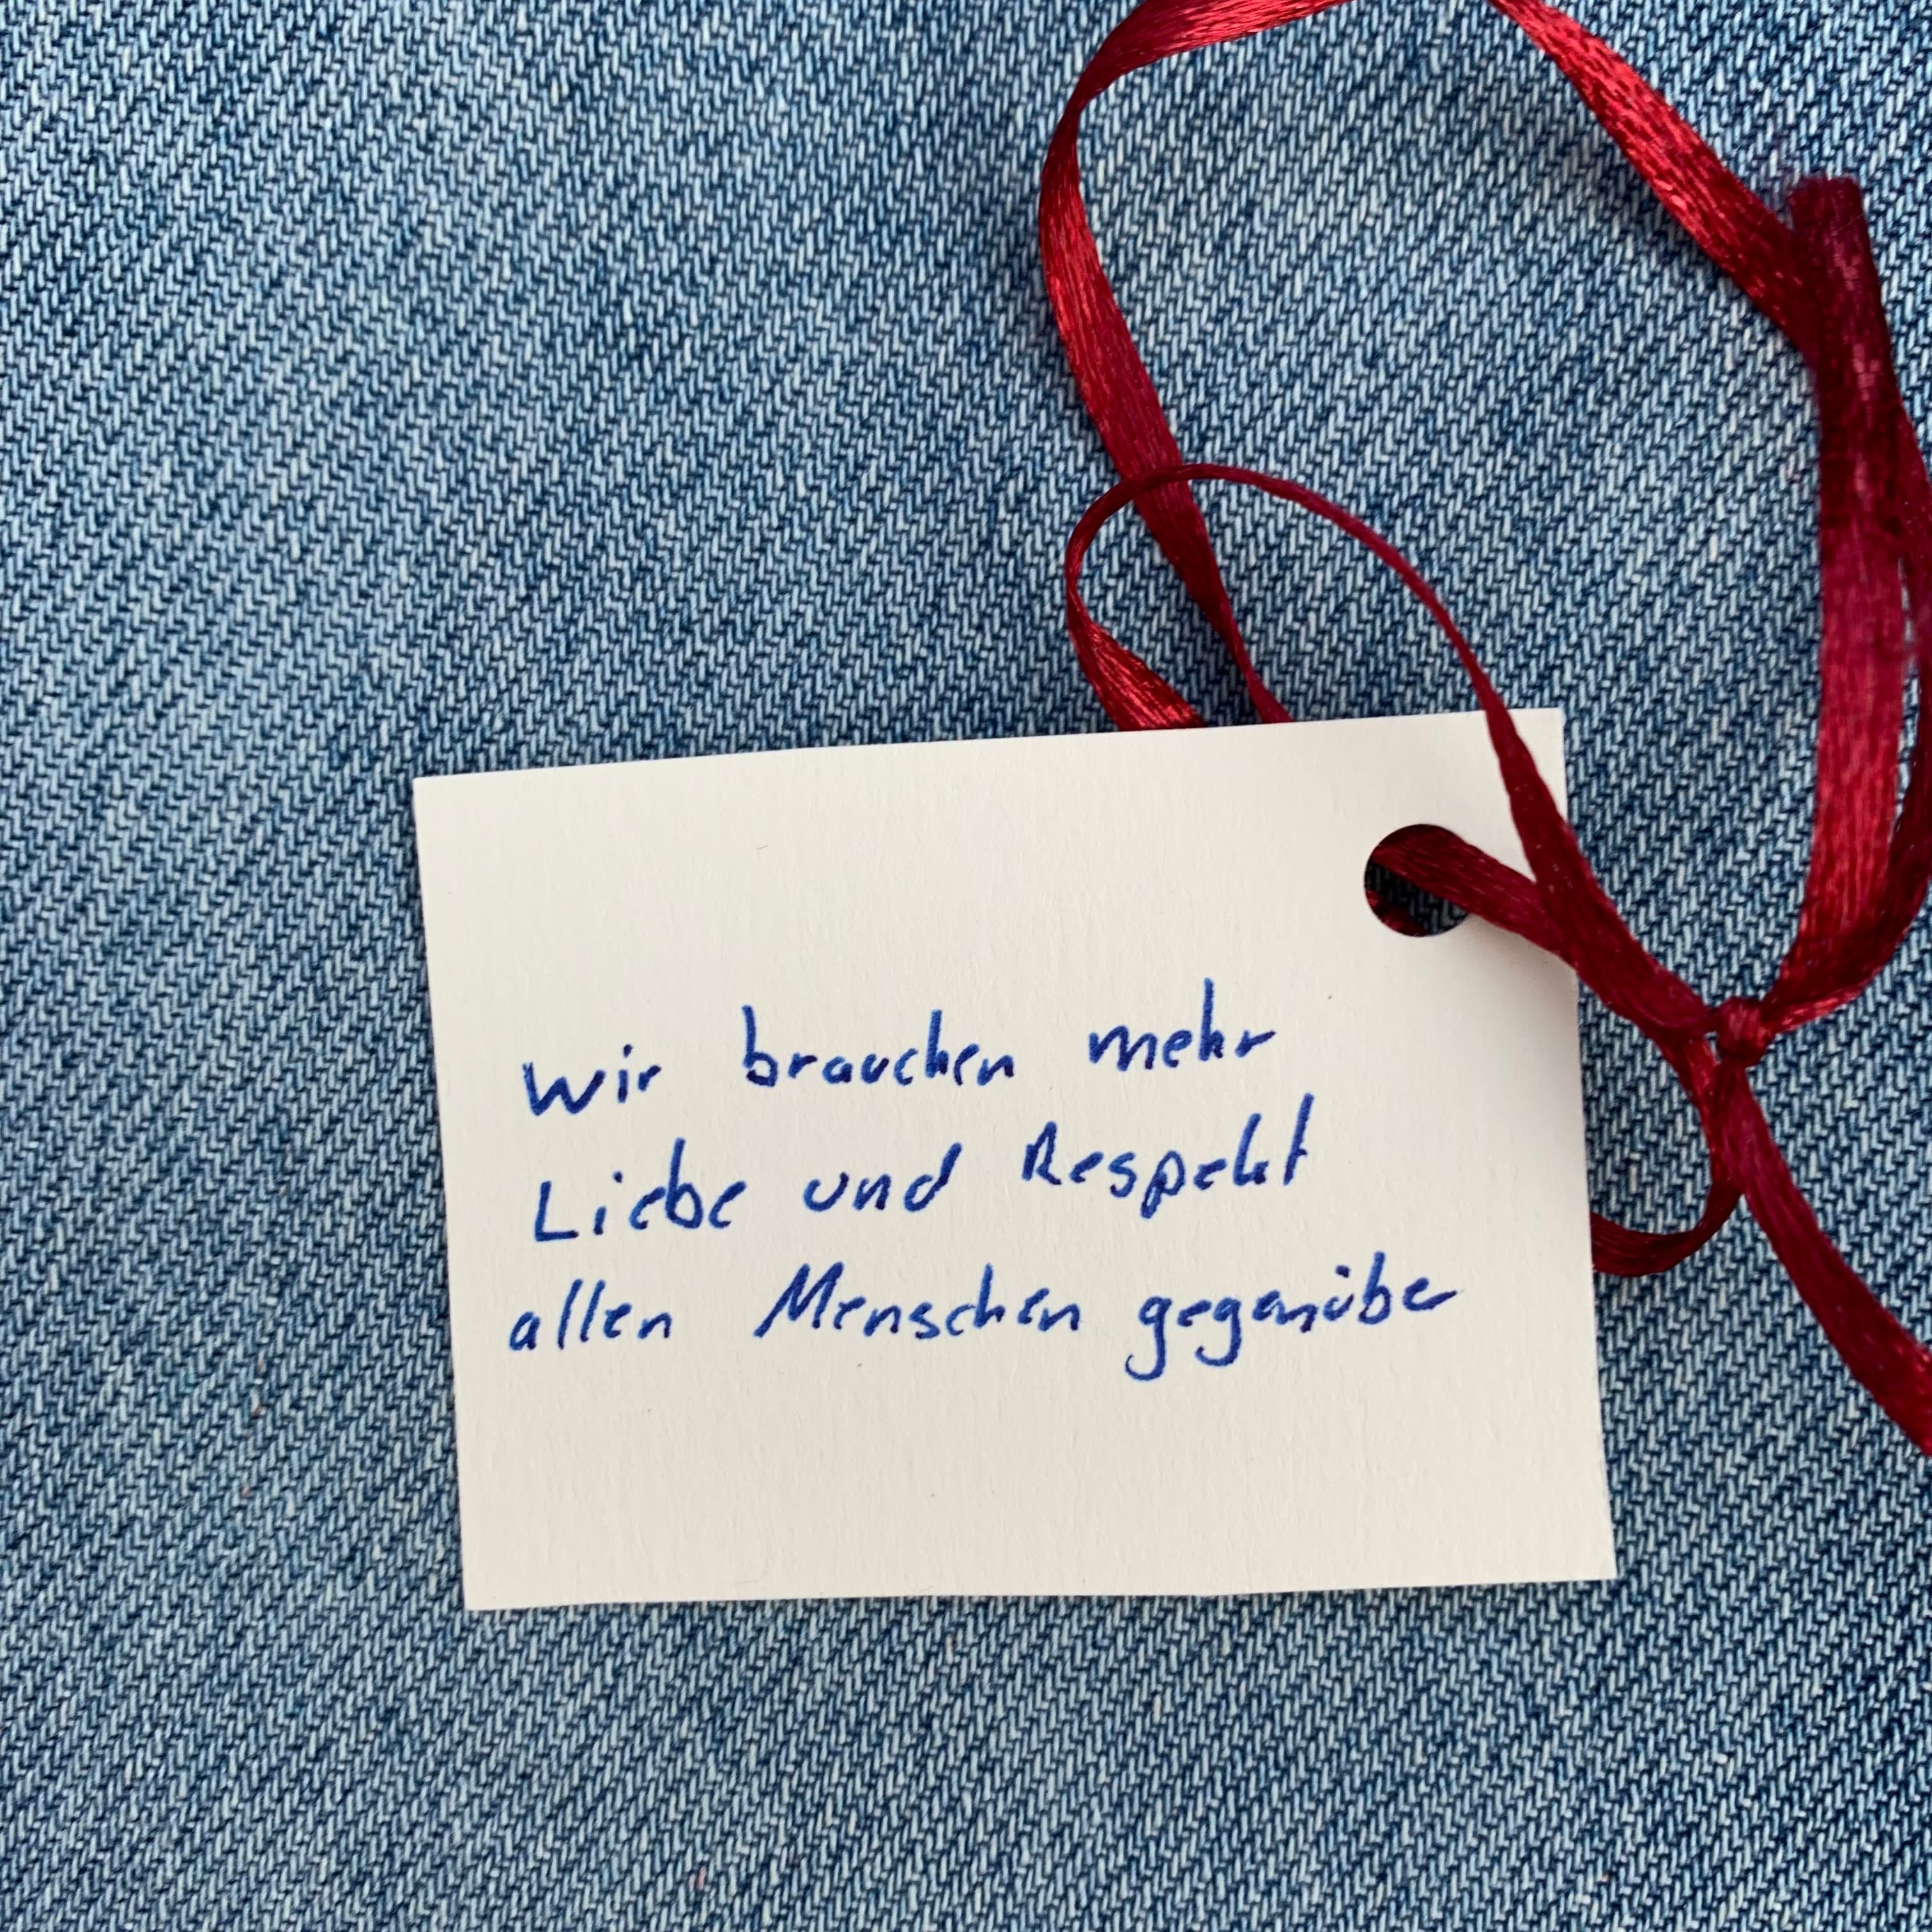 Wir brauchen mehr
Liebe und Respekt
allen Menschen gegenüber